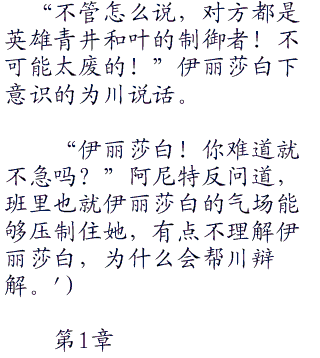 “不管怎么说，对方都是
英雄青井和叶的制御者！不
可能太废的！”伊丽莎白下
意识的为川说话。
“伊丽莎白！你难道就
不急吗？”阿尼特反问道，
班里也就伊丽莎白的气场能
够压制住她，有点不理解伊
丽莎白，为什么会帮川辩
解。′)
第1章